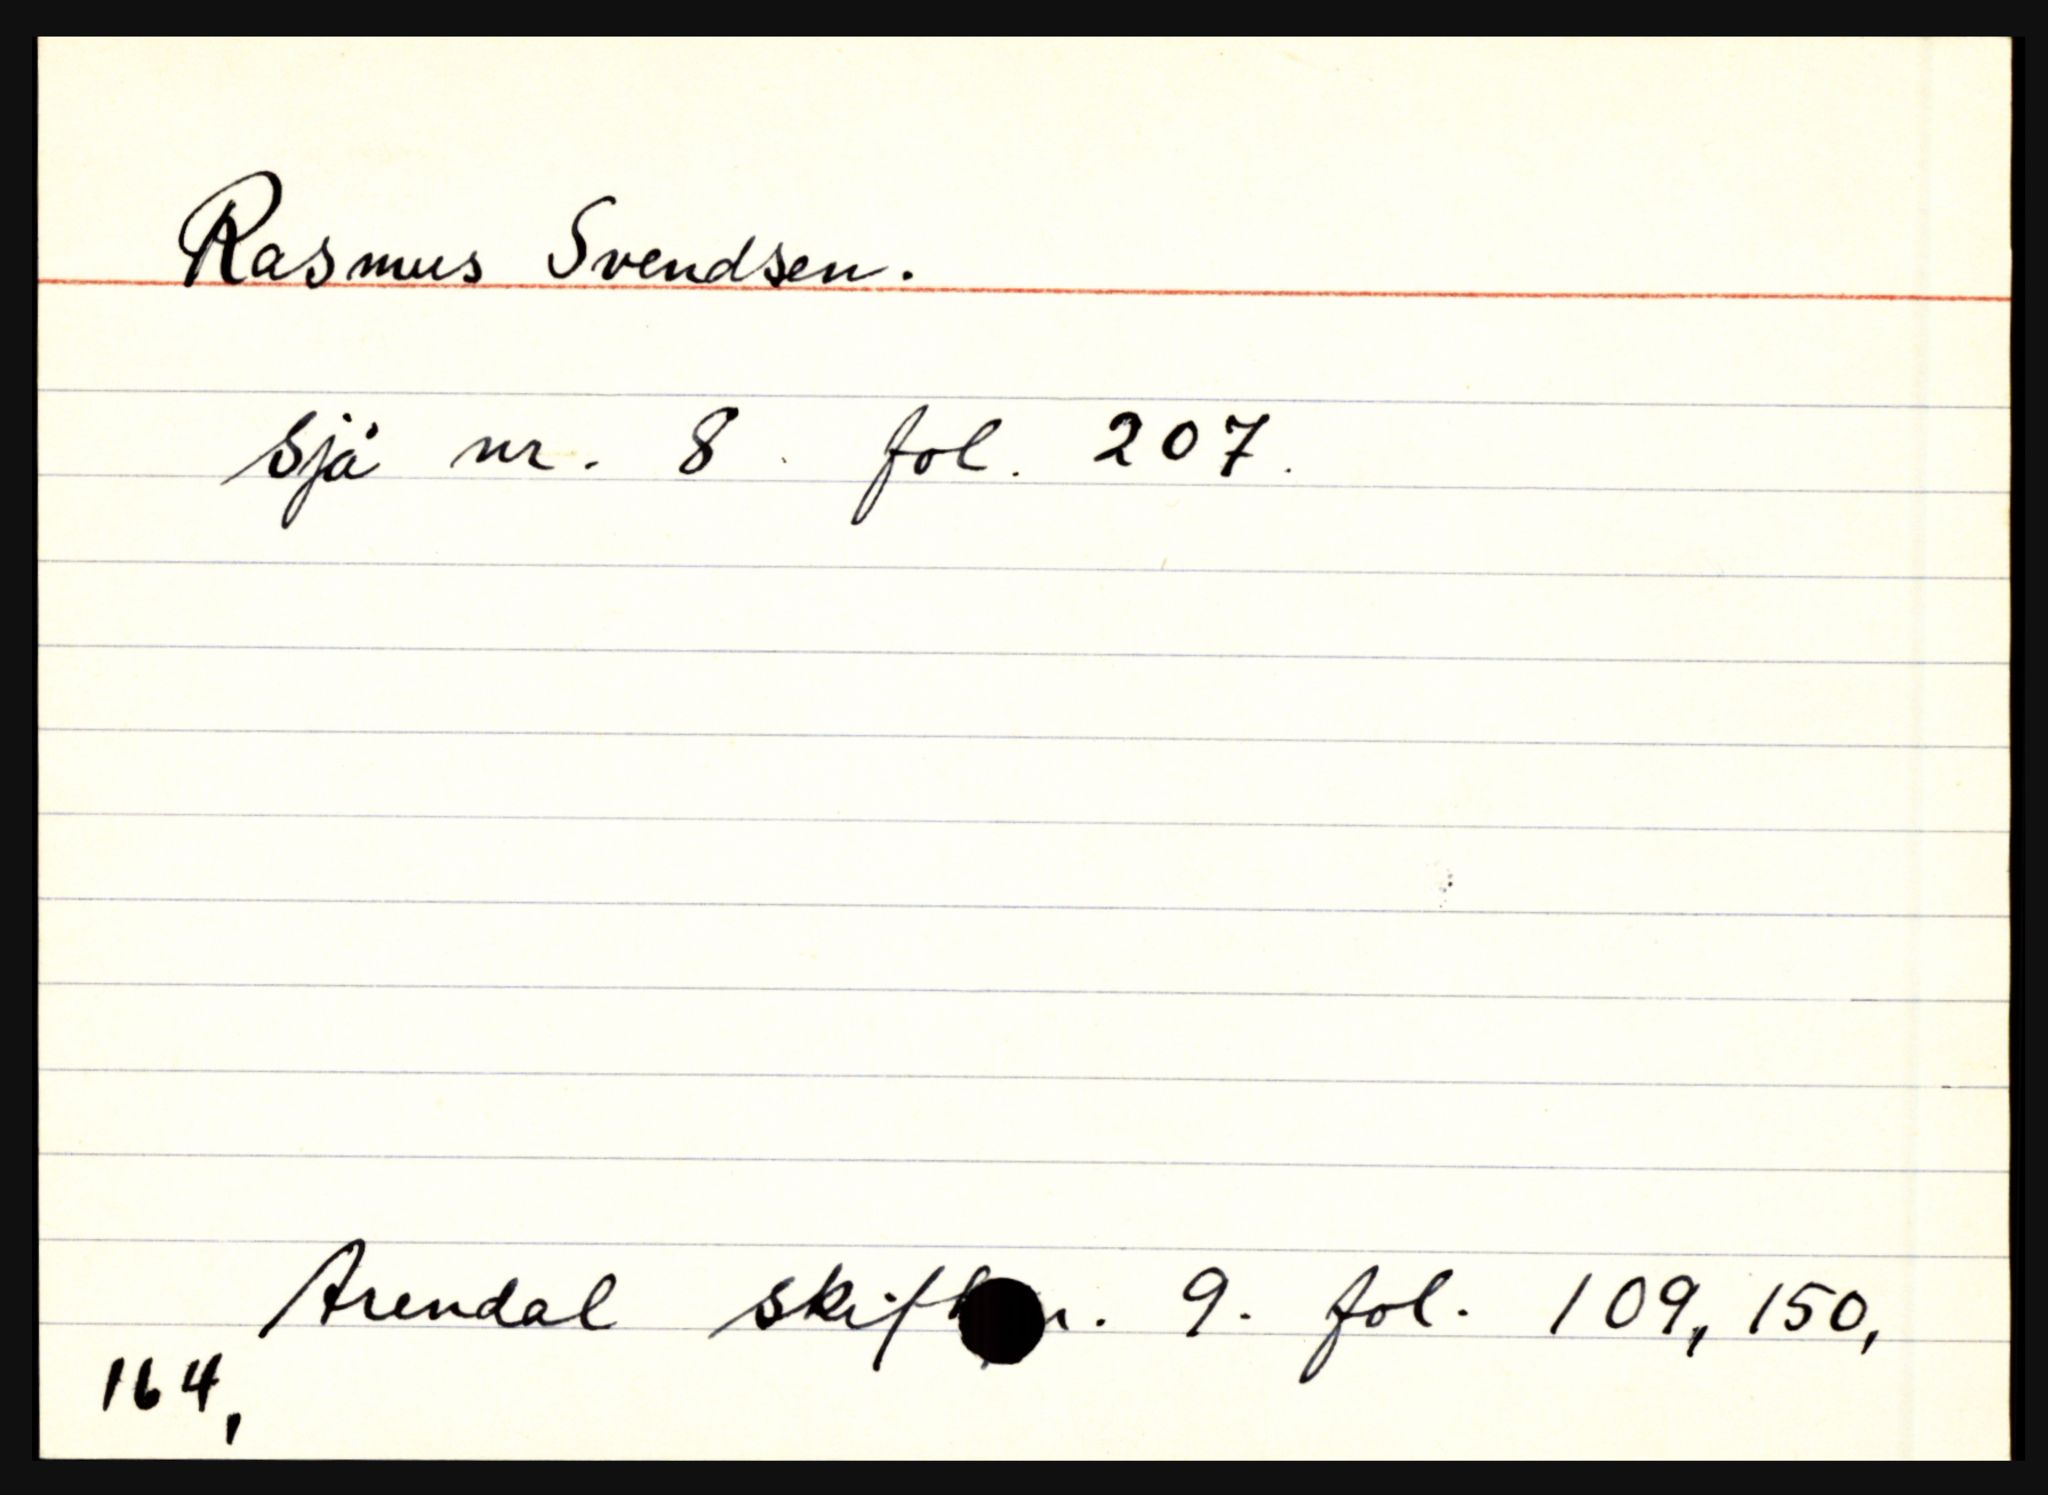 Rasmus Svendsen.
sjå nr. 8. fol. 207.
Arendal 9. fol. 109, 150,
164,